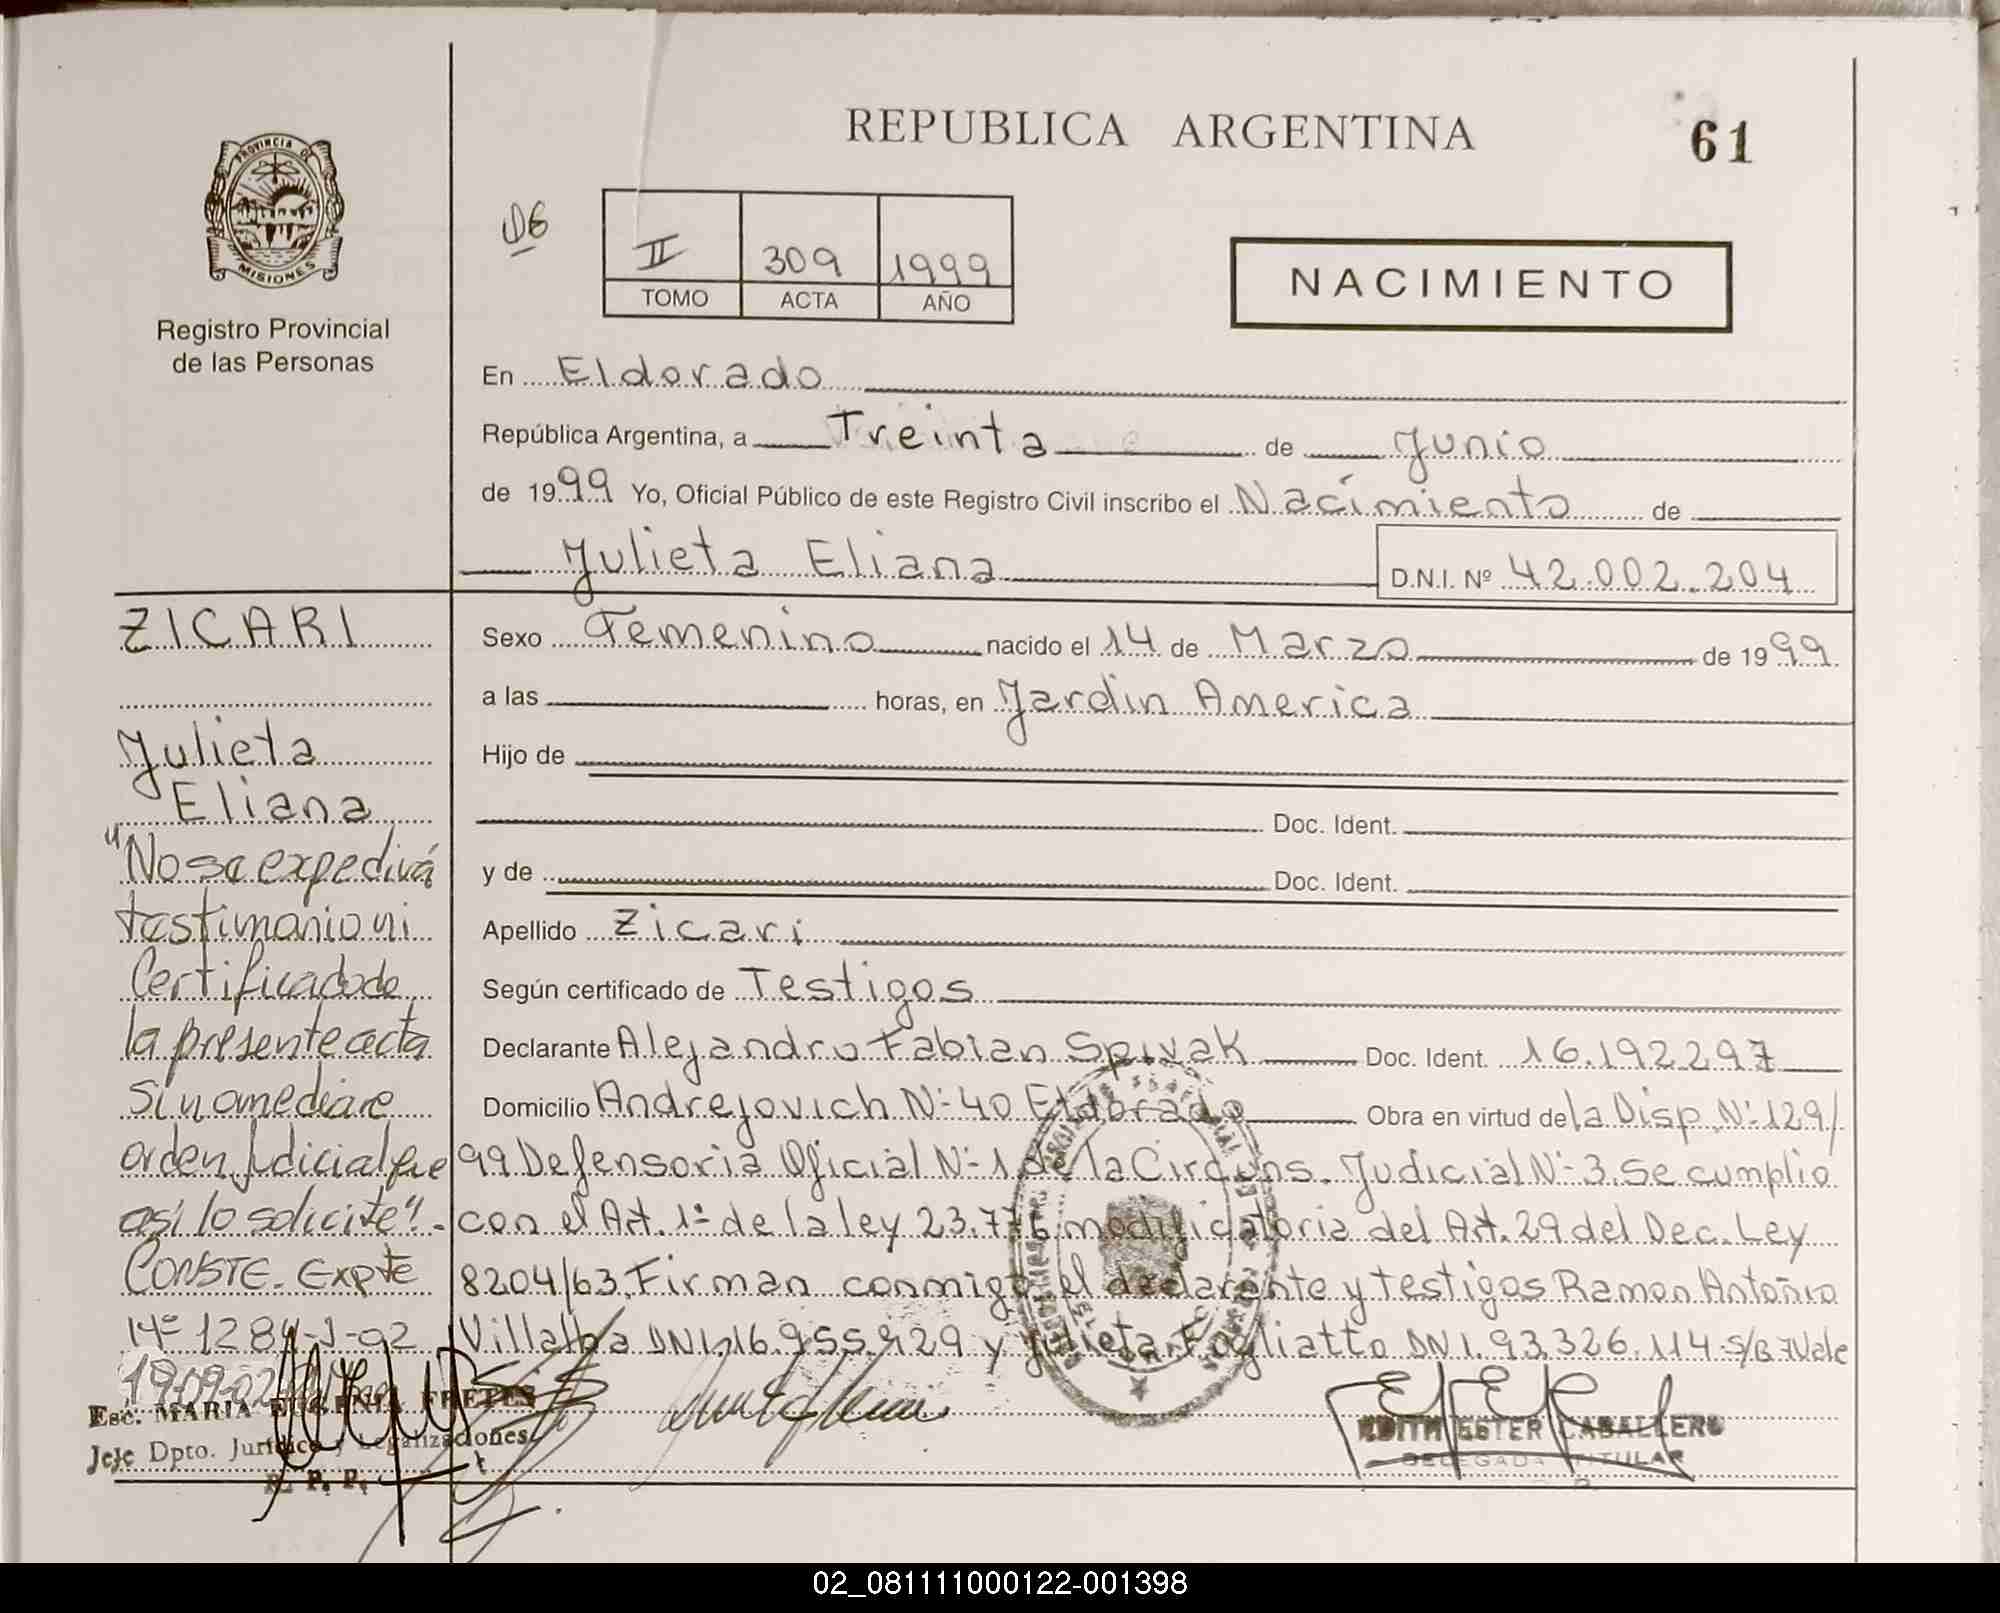 REPUBLICA ARGENTINA
61
PROVINCIA DE
MISIONES
Registro Provincial
de las Personas
II 309 1999
TOMO ACTA AÑO
NACIMIENTO
En Eldorado
República Argentina, a Treinta de Junio
de 1999 Yo, Oficial Público de este Registro Civil inscribo el Nacimiento de
Julieta Eliana D.N.I. Nº 42.002.204
ZICARI
Julieta
Eliana
"No se expedirá
testimonio ni
Certificado de
la presente acta
si no mediare
orden judicial que
así lo solicite".-
CONSTE. Expte
Nº 1284-J-02
19-09-02
Esc. MARIA EUGENIA FRETES
Jefe Dpto. Jurídico y Legalizaciones
R. P. P.
Sexo Femenino nacido el 14 de Marzo de 1999
a las horas, en Jardin America
Hijo de
Doc. Ident.
y de Doc. Ident.
Apellido Zicari
Según certificado de Testigos
Declarante Alejandro Fabian Spivak Doc. Ident. 16.192.297
Domicilio Andrejovich Nº 40 Eldorado Obra en virtud de la Disp. Nº 129/
99 Defensoria Oficial Nº 1 de la Circuns. Judicial Nº 3. Se cumplio
con el Art. 1º de la ley 23.776 modificatoria del Art. 29 del Dec. Ley
8204/63. Firman conmigo el declarante y testigos Ramon Antonio
Villalba DNI. 16.955.929 y Julieta Fogliatto DNI. 93.326.114 S/B 7 Vale
EDITH ESTER CABALLERO
DELEGADA TITULAR
02_081111000122-001398